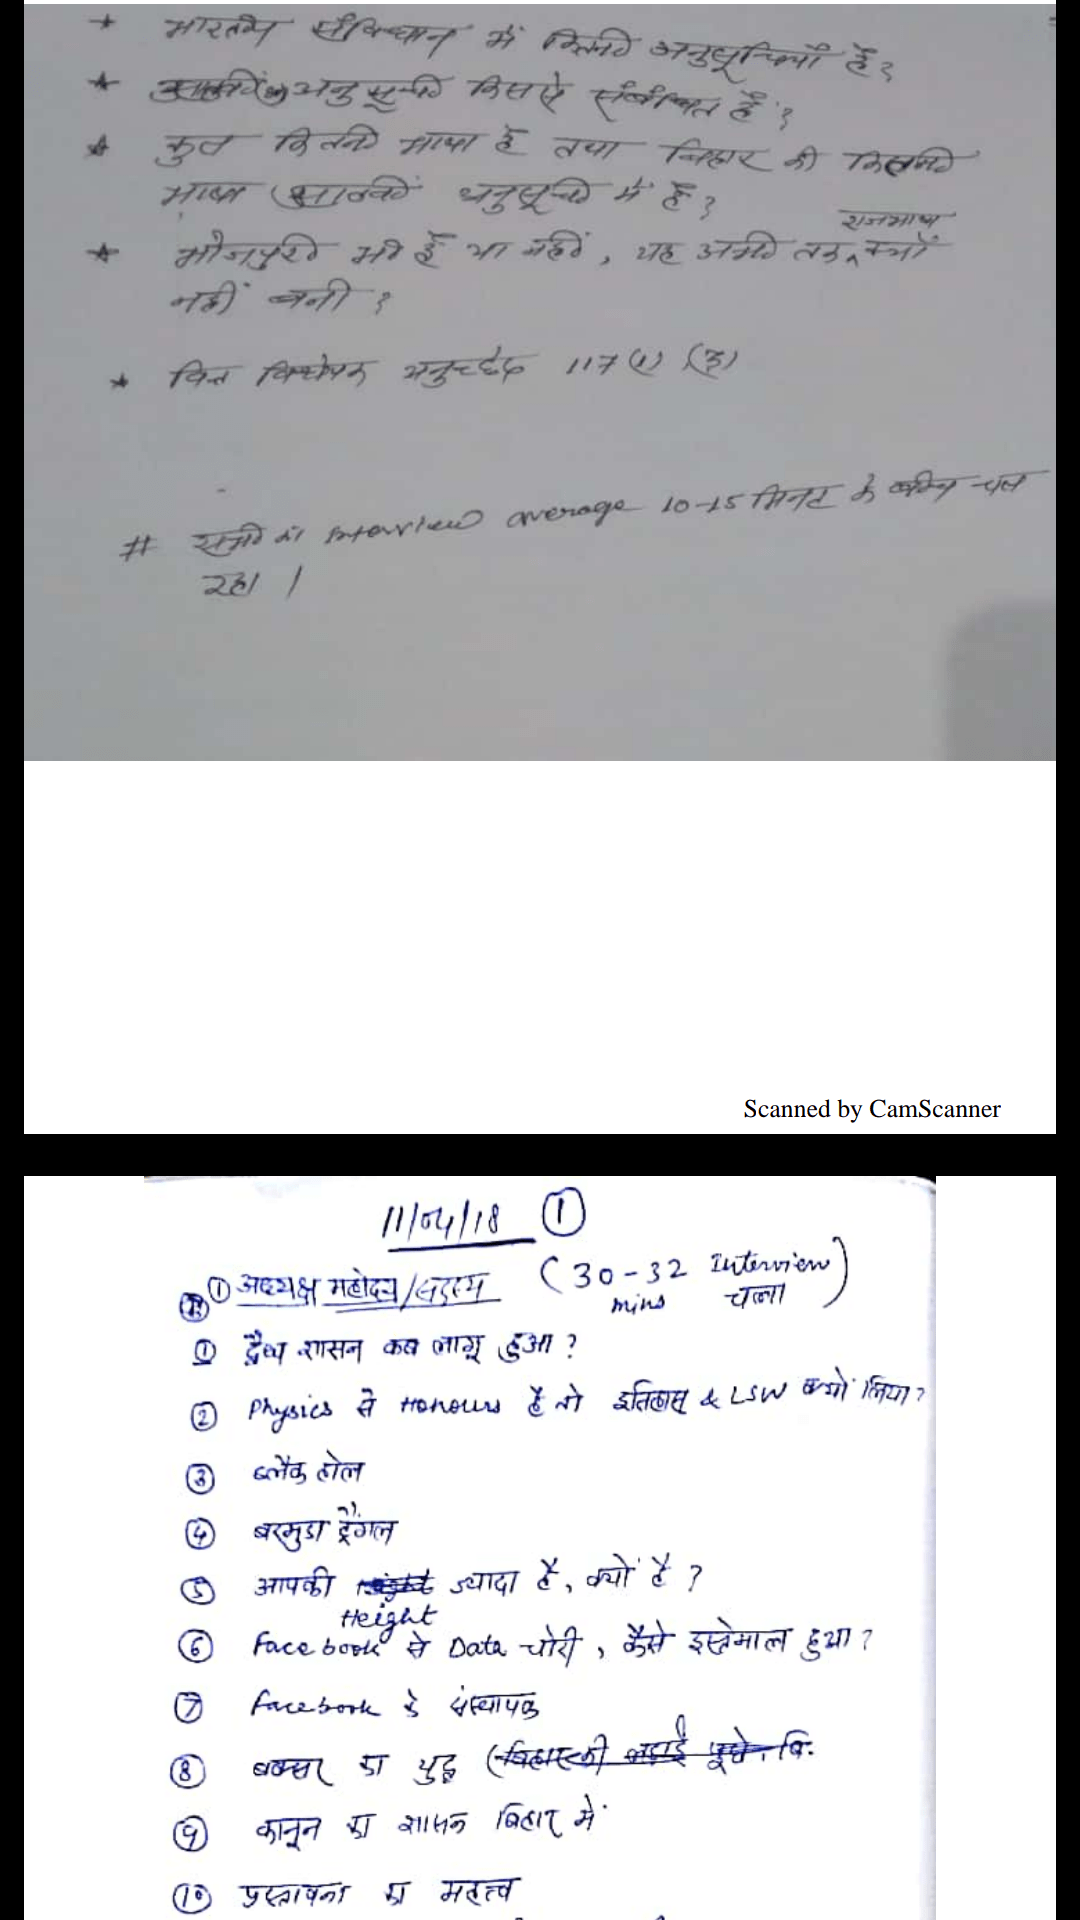 * भारतीय संविधान में कितनी अनुसूचियाँ हैं?
* अनुसूची किससे संबंधित हैं?
* कुल कितनी भाषा हैं तथा बिहार की कितनी
भाषा आठवीं अनुसूची में हैं?
राजभाषा
* भोजपुरी भी है या नहीं, यह अभी तक ^ क्यों
नहीं बनी?
* वित्त विधेयक अनुच्छेद 117 (1) (3)
# सभी का Interview average 10-15 मिनट के बीच चल
रहा।
Scanned by CamScanner
11/04/18 ①
① अध्यक्ष महोदय/सदस्य (30-32 Interview)
mins चला
① द्वैध शासन कब लागू हुआ?
② Physics से Honours है तो इतिहास & LSW क्यों लिया?
③ ब्लैक होल
④ बरमुडा ट्रैंगल
⑤ आपकी ज्यादा है, क्यों है?
Height
⑥ Facebook से Data चोरी, कैसे इस्तेमाल हुआ?
⑦ Facebook के संस्थापक
⑧ बक्सर का युद्ध
⑨ कानून का शासन बिहार में
⑩ प्रस्तावना का महत्त्व